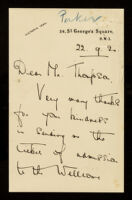 Parker
24, St George's Square,
S.W.1.
22.9.2
Dear Mr. Thompson,
Very many thanks
for your kindness
in sending on the
ticket of admission
to the Wellcome